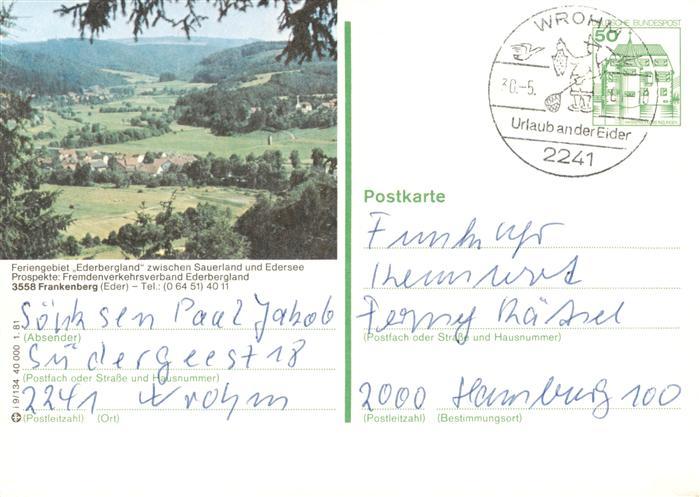 WROHM
30.-5.
Urlaub an der Eider
2241
DEUTSCHE BUNDESPOST
50
Feriengebiet „Ederbergland“ zwischen Sauerland und Edersee
Prospekte: Fremdenverkehrsverband Ederbergland
3558 Frankenberg (Eder) – Tel.: (0 64 51) 40 11
Sönksen Paul Jakob
(Absender)
Südergeest 18
(Postfach oder Straße und Hausnummer)
2241 Wrohm
(Postleitzahl) (Ort)
i 9/134 40 000 1.81
Postkarte
Funkuhr
Kennwort
Fernseh Rätsel
(Postfach oder Straße und Hausnummer)
2000 Hamburg 100
(Postleitzahl) (Bestimmungsort)